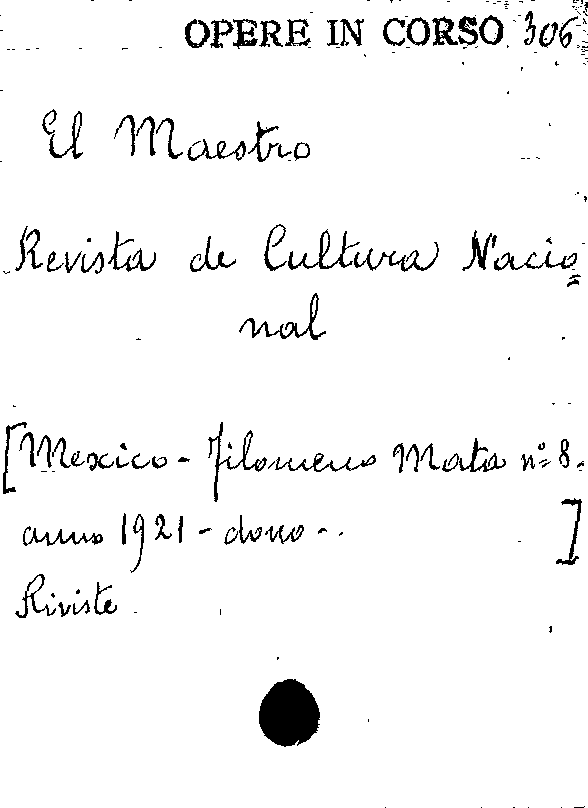 OPERE IN CORSO 306
El Maestro
Revista de Cultura Nacio=
nal
[Mexico - Filomeno Mata nº 8.
anno 1921 - dono - .
]
Riviste